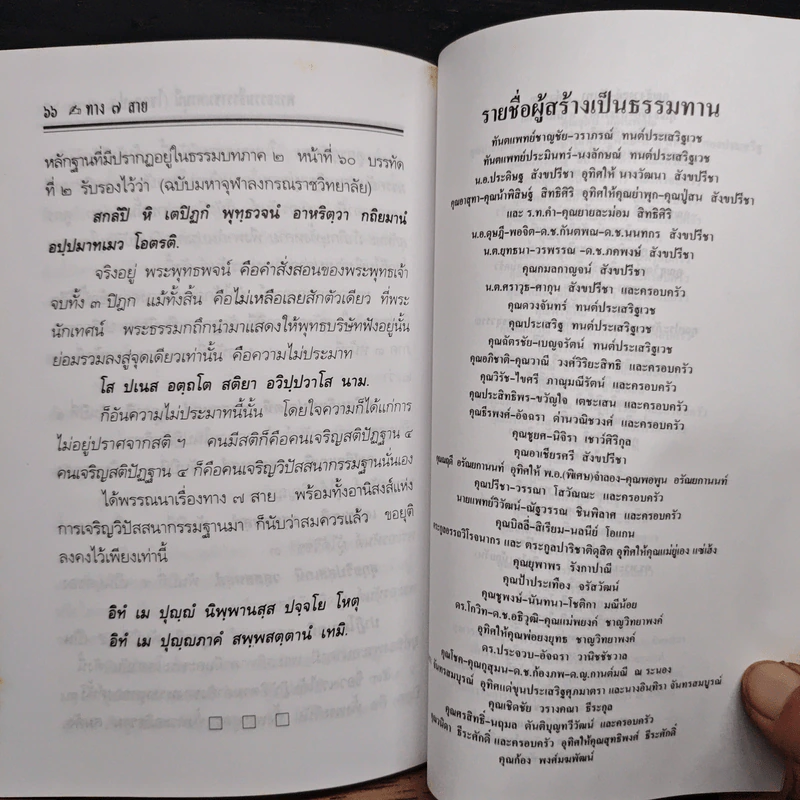 ๖๖ ทาง ๗ สาย
หลักฐานที่มีปรากฏอยู่ในธรรมบทภาค ๒ หน้าที่ ๖๐ บรรทัด
ที่ ๒ รับรองไว้ว่า (ฉบับมหาจุฬาลงกรณราชวิทยาลัย)
สกลํปิ หิ เตปิฏกํ พุทฺธวจนํ อาหริตฺวา กถิยมานํ
อปฺปมาทเมว โอตรติ.
จริงอยู่ พระพุทธพจน์ คือคำสั่งสอนของพระพุทธเจ้า
จบทั้ง ๓ ปิฎก แม้ทั้งสิ้น คือไม่เหลือเลยสักตัวเดียว ที่พระ
นักเทศน์ พระธรรมกถึกนำมาแสดงให้พุทธบริษัทฟังอยู่นั้น
ย่อมรวมลงสู่จุดเดียวเท่านั้น คือความไม่ประมาท
โส ปเนส อตฺถโต สติยา อวิปฺปวาโส นาม.
ก็อันความไม่ประมาทนี้นั้น โดยใจความก็ได้แก่การ
ไม่อยู่ปราศจากสติ ฯ คนมีสติก็คือคนเจริญสติปัฏฐาน ๔
คนเจริญสติปัฏฐาน ๔ ก็คือคนเจริญวิปัสสนากรรมฐานนั่นเอง
ได้พรรณนาเรื่องทาง ๗ สาย พร้อมทั้งอานิสงส์แห่ง
การเจริญวิปัสสนากรรมฐานมา ก็นับว่าสมควรแล้ว ขอยุติ
ลงคงไว้เพียงเท่านี้
อิทํ เม ปุญฺญํ นิพฺพานสฺส ปจฺจโย โหตุ
อิทํ เม ปุญฺญภาคํ สพฺพสตฺตานํ เทมิ.
รายชื่อผู้สร้างเป็นธรรมทาน
ทันตแพทย์ชาญชัย-วราภรณ์ ทนต์ประเสริฐเวช
ทันตแพทย์ประมินทร์-นงลักษณ์ ทนต์ประเสริฐเวช
น.อ.ประดิษฐ สังขปรีชา อุทิศให้ นางวัฒนา สังขปรีชา
คุณอาสุทา-คุณน้าพิสิษฐ์ สิทธิศิริ อุทิศให้คุณย่าพุก-คุณปู่สน สังขปรีชา
และ ร.ท.คำ-คุณยายละม่อม สิทธิศิริ
น.อ.ดุษฎี-พอจิต-ด.ช.กันตพณ-ด.ช.นนทกร สังขปรีชา
น.ต.ยุทธนา-วรพรรณ -ด.ช.ภคพงษ์ สังขปรีชา
คุณกมลกาญจน์ สังขปรีชา
น.ต.ศราวุธ-ศากุน สังขปรีชา และครอบครัว
คุณดวงจันทร์ ทนต์ประเสริฐเวช
คุณประเสริฐ ทนต์ประเสริฐเวช
คุณฉัตรชัย-เบญจรัตน์ ทนต์ประเสริฐเวช
คุณอภิชาติ-คุณวาณี วงศ์วิริยะสิทธิ และครอบครัว
คุณวิรัช-ไขศรี ภาณุมณีรัตน์ และครอบครัว
คุณประสิทธิพร-ขวัญใจ เตชะเสน และครอบครัว
คุณธีรพงศ์-อัจฉรา ด่านวณิชวงศ์ และครอบครัว
คุณชูยศ-นิจิรา เชาว์ศิริกุล
คุณอาเชียรศรี สังขปรีชา
คุณฤดี อรัณยกานนท์ อุทิศให้ พ.อ.(พิเศษ)จำลอง-คุณพอพูน อรัณยกานนท์
คุณปรีชา-วรรณา โสวัณณะ และครอบครัว
นายแพทย์วิวัฒน์-ณัฐวรรณ ชินพิลาศ และครอบครัว
คุณบิลลี่-สิเรียม-นลนีย์ โอแกน
และ ตระกูลปาริชาติดุสิต อุทิศให้คุณแม่ยู่เอง แซ่เฮ้ง
คุณยุพาพร รังกาปาณี
คุณป้าประเทือง จรัสวัฒน์
คุณชูพงษ์-นันทนา-โชติกา มณีน้อย
ดร.โกวิท-ด.ช.อธิวุฒิ-คุณแม่พยงค์ ชาญวิทยาพงค์
อุทิศให้คุณพ่อยงยุทธ ชาญวิทยาพงค์
ดร.ประจวบ-อัจฉรา วานิชชัชวาล
คุณโชค-คุณกุสุมน-ด.ช.ก้องภพ-ด.ญ.กานต์มณี ณ ระนอง
จันทรสมบูรณ์ อุทิศแด่ขุนประเสริฐศุภมาตรา และนางอินทิรา จันทรสมบูรณ์
คุณเชิดชัย วรางคณา ธีระกุล
คุณศรสิทธิ์-นฤมล ตันติบุญทวีวัฒน์ และครอบครัว
ธีระศักดิ์ และครอบครัว อุทิศให้คุณสุทธิพงศ์ ธีระศักดิ์
คุณก้อง พงศ์มฆพัฒน์